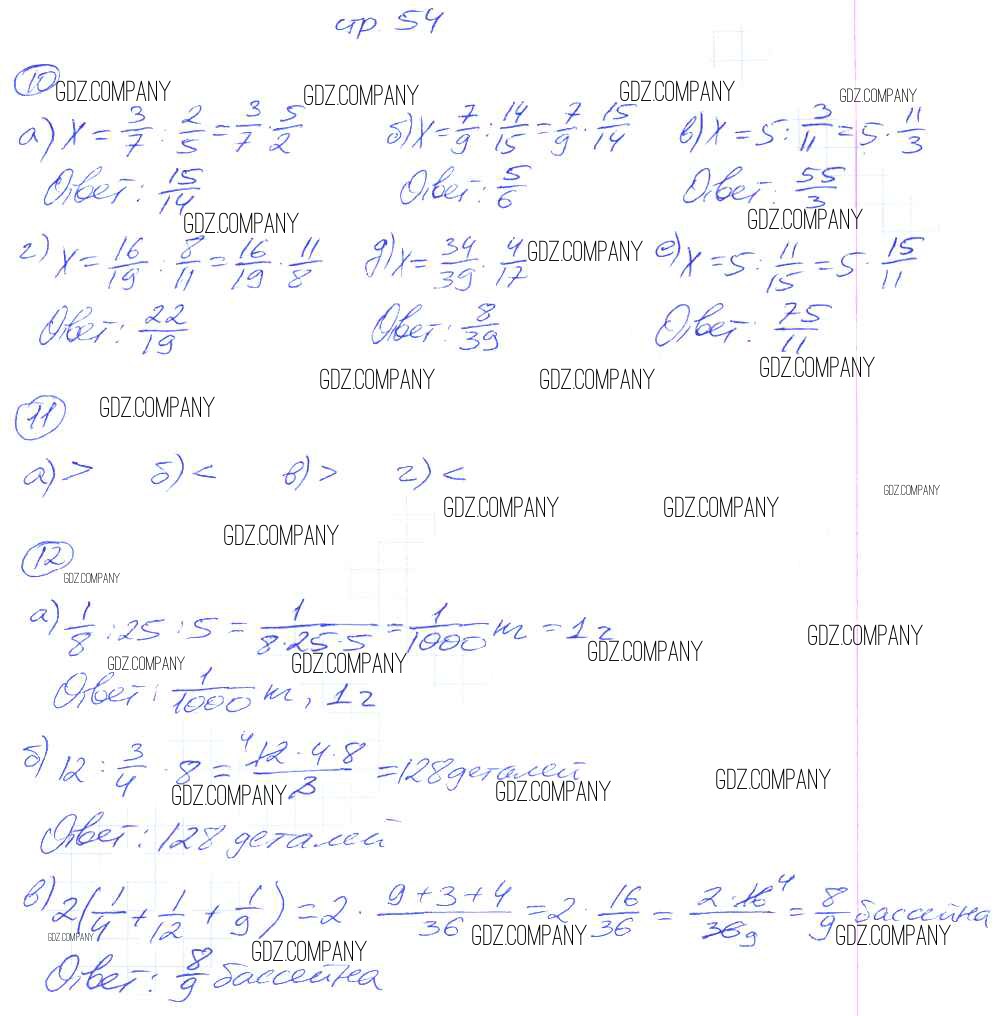 стр. 54
10
GDZ.COMPANY GDZ.COMPANY GDZ.COMPANY GDZ.COMPANY
а) x = 3/7 : 2/5 = 3/7 · 5/2 б) x = 7/9 : 14/15 = 7/9 · 15/14 в) x = 5 : 3/11 = 5 · 11/3
Ответ: 15/14 Ответ: 5/6 Ответ: 55/3
GDZ.COMPANY GDZ.COMPANY
г) x = 16/19 : 8/11 = 16/19 · 11/8 д) x = 34/39 · 4/17 GDZ.COMPANY е) x = 5 : 11/15 = 5 · 15/11
Ответ: 22/19 Ответ: 8/39 Ответ: 75/11
GDZ.COMPANY GDZ.COMPANY GDZ.COMPANY
11 GDZ.COMPANY
а) > б) < в) > г) <
GDZ.COMPANY GDZ.COMPANY GDZ.COMPANY
GDZ.COMPANY
12
GDZ.COMPANY
а) 1/8 : 25 : 5 = 1/(8·25·5) = 1/1000 т = 1 г
GDZ.COMPANY GDZ.COMPANY GDZ.COMPANY GDZ.COMPANY
Ответ: 1/1000 т, 1 г
б) 12 : 3/4 · 8 = 4 12·4·8/3 = 128 деталей
GDZ.COMPANY GDZ.COMPANY GDZ.COMPANY
Ответ: 128 деталей
в) 2(1/4 + 1/12 + 1/9) = 2 · (9+3+4)/36 = 2 · 16/36 = 2·16 4/36 9 = 8/9 бассейна
GDZ.COMPANY GDZ.COMPANY GDZ.COMPANY GDZ.COMPANY
Ответ: 8/9 бассейна